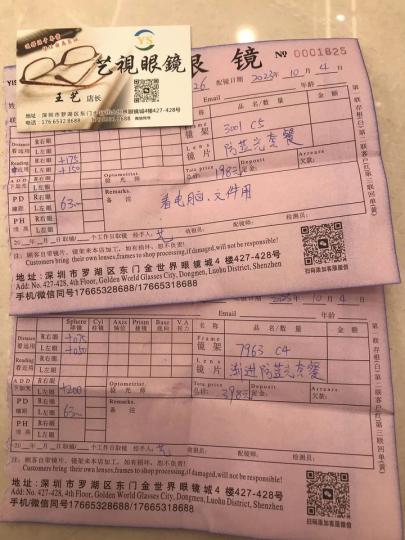 YS
艺視眼鏡
王艺 店长
地址：深圳市罗湖区东门金世界眼镜城4楼427-428号
电话：176 6532 8688
镜
№ 0001825
配镜日期 2023年10月4日
Email 年龄
品名/数量 金额
Frame 镜架 3001 C5
Reading 看近用 R右眼 +175
L左眼 +150
Lens 镜片 防蓝光套餐
ADD 下加光 R右眼
L左眼
Optometrist. 验光师
Total price 总价 198元
Deposit 定金
Arrears 欠款:
PD 瞳距 R右眼 63
L左眼
Remarks. 备注 看电脑.文件用
PH 瞳高 R右眼
L左眼
20 年 月 日取镜 个工作日取镜 经手人: 艺 配镜师: 检测员:
注：顾客自带镜片、镜架来本店加工，如有损坏，恕不负责！
Customers bring their own lenses,frames to shop processing,if damaged,will not be responsible!
地址：深圳市罗湖区东门金世界眼镜城4楼427-428号
Add: No. 427-428, 4th Floor, Golden World Glasses City, Dongmen, Luohu District, Shenzhen
手机/微信同号17665328688 / 17665328688
扫码添加客服微信
2023年10月4日
Email 年龄
Sphere 球镜 Cyl 柱镜 Axis 轴位 Prism 棱镜 Base 底向 V.A 视力
品名/数量 金额
Distance 看远用 R右眼 +075
L左眼 +050
Frame 镜架 7963 C4
Reading 看近用 R右眼
L左眼
Lens 镜片 渐进防蓝光套餐
ADD 下加光 R右眼 +200
L左眼
Optometrist. 验光师
Total price 总价 398元
Deposit 定金
Arrears 欠款:
PD 瞳距 R右眼 63
L左眼
Remarks. 备注
PH 瞳高 R右眼
L左眼
20 年 月 日取镜 个工作日取镜 经手人: 艺 配镜师: 检测员:
注：顾客自带镜片、镜架来本店加工，如有损坏，恕不负责！
Customers bring their own lenses,frames to shop processing,if damaged,will not be responsible!
地址：深圳市罗湖区东门金世界眼镜城4楼427-428号
Add: No. 427-428, 4th Floor, Golden World Glasses City, Dongmen, Luohu District, Shenzhen
手机/微信同号17665328688 / 17665328688
扫码添加客服微信